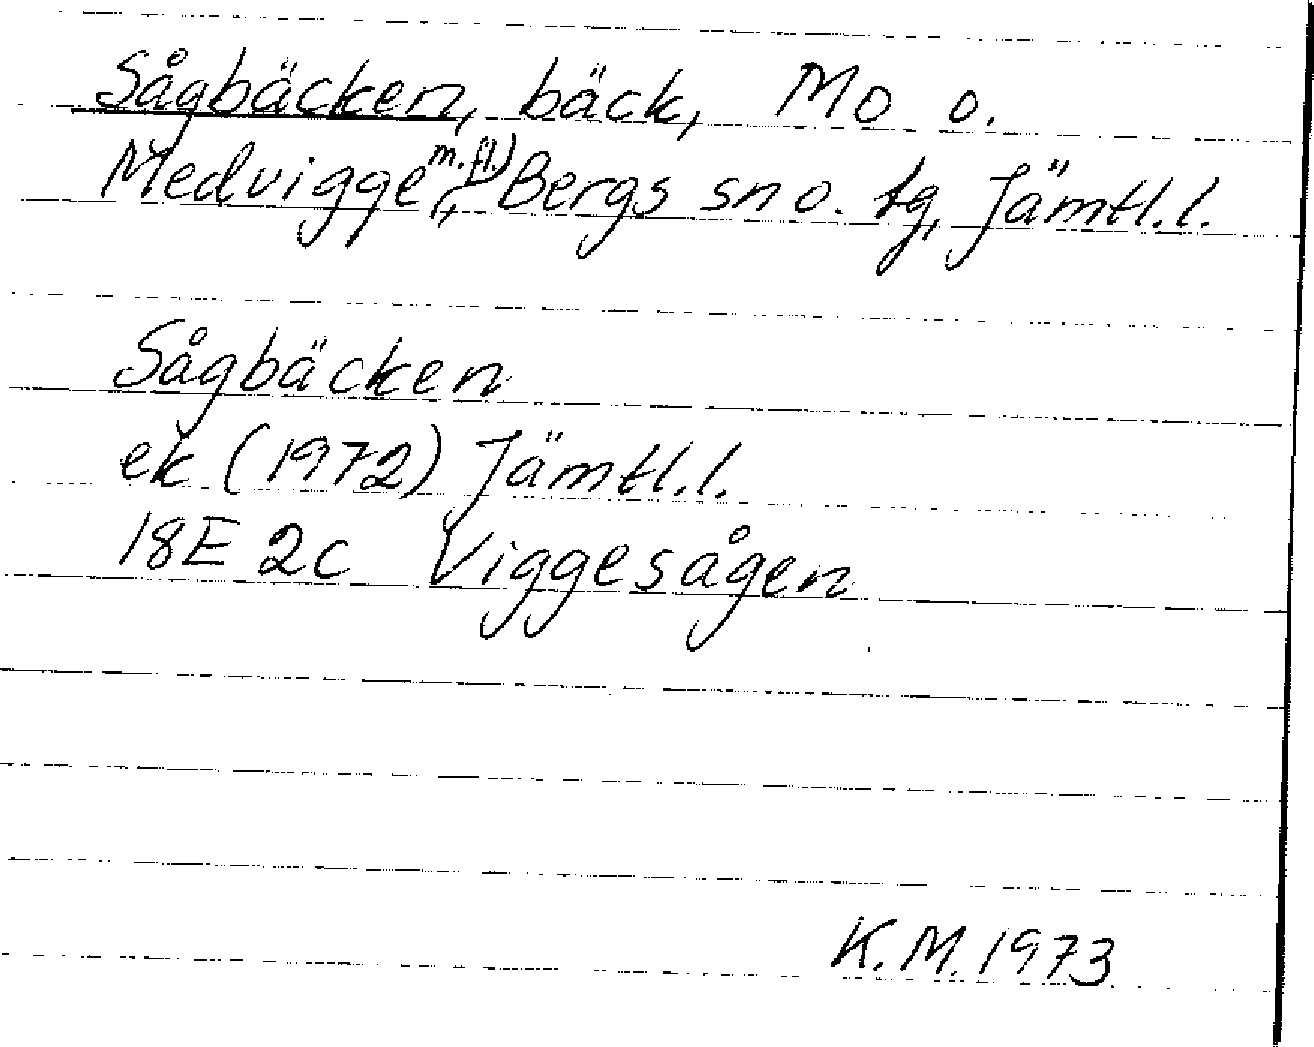 Sågbäcken, bäck, Mo o.
Medvigge m.fl.), Bergs sn o. tg, Jämtl.l.
Sågbäcken
ek (1972) Jämtl.l.
18E 2c Viggesågen
K.M. 1973